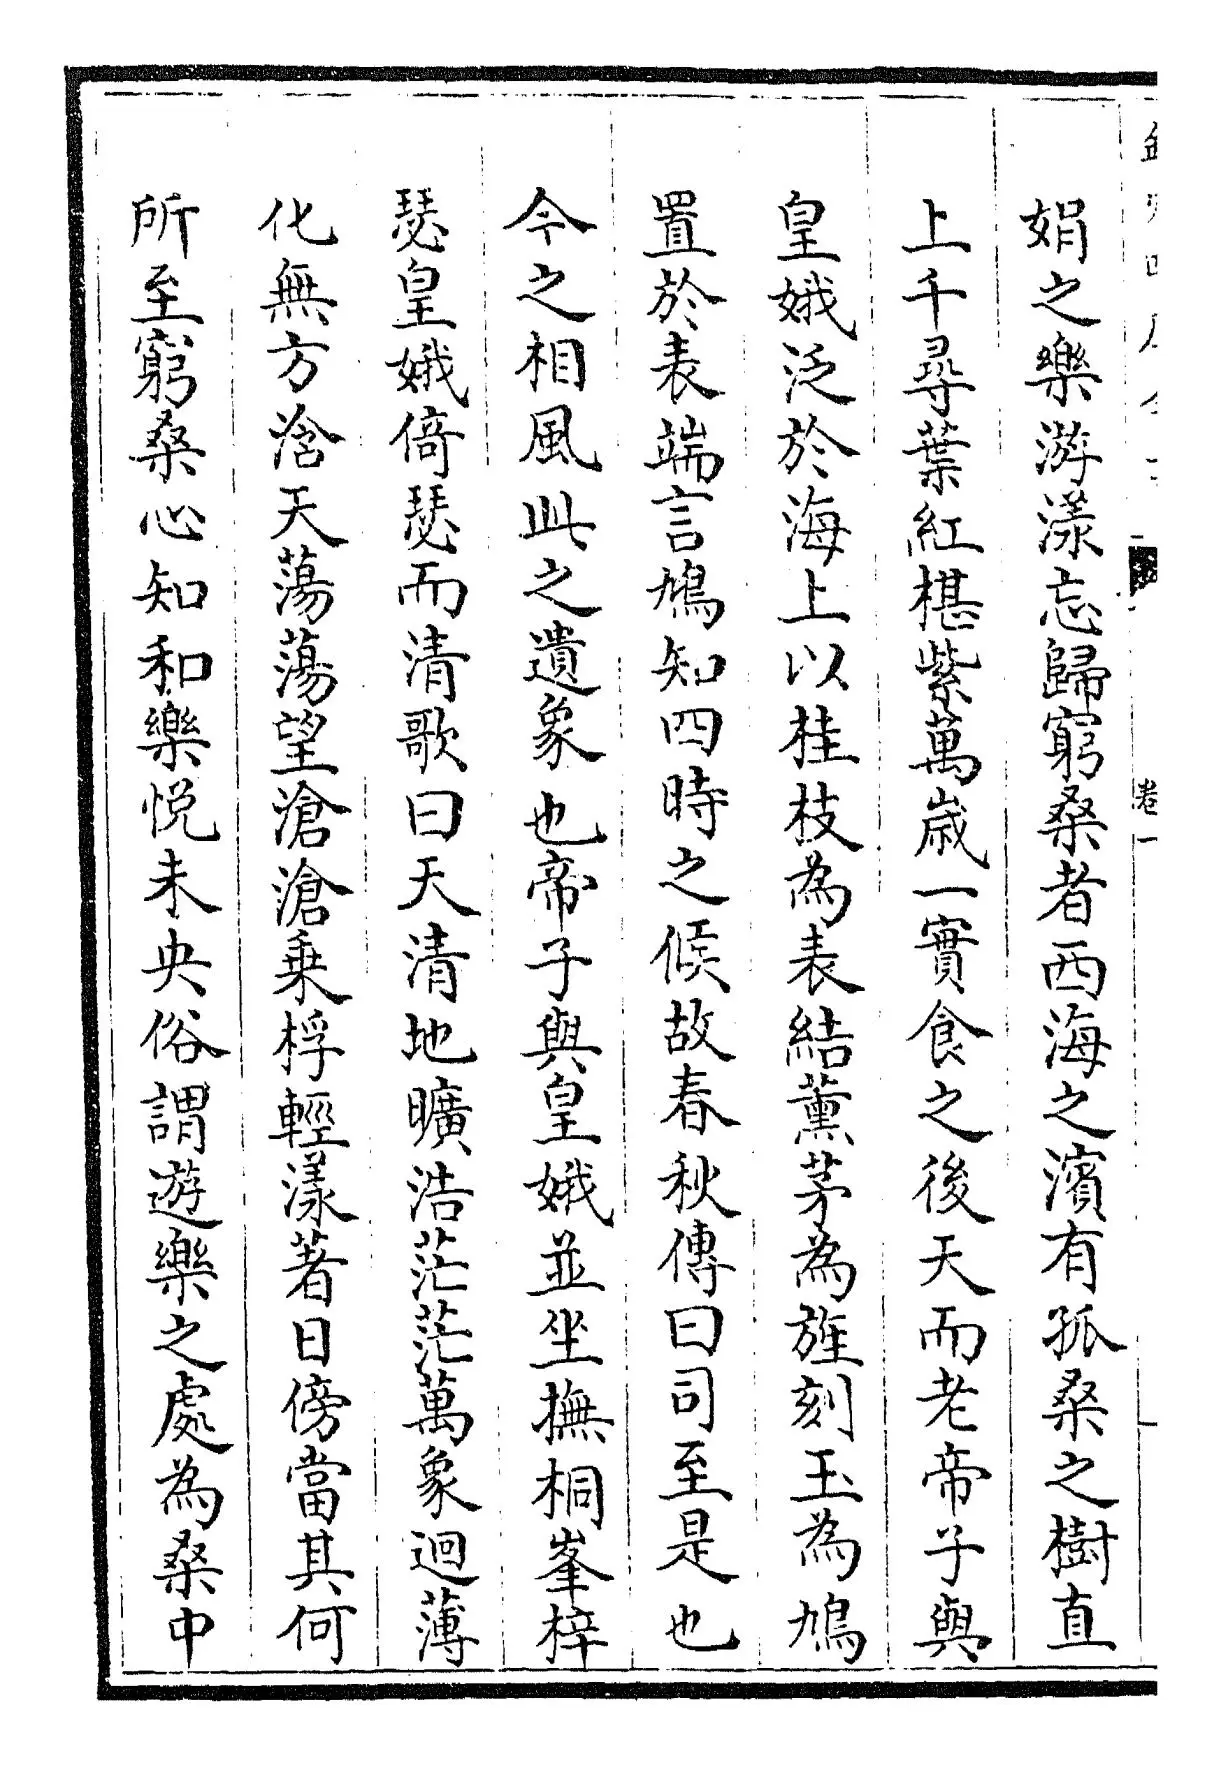 卷一
娟之樂游漾忘歸窮桑者西海之濱有孤桑之樹直
上千尋葉紅椹紫萬歳一實食之後天而老帝子與
皇娥泛於海上以桂枝為表結薰茅為旌刻玉為鳩
置於表端言鳩知四時之候故春秋傳曰司至是也
今之相風此之遺象也帝子與皇娥並坐撫桐峯梓
瑟皇娥倚瑟而清歌曰天清地曠浩茫茫萬象迴薄
化無方浛天蕩蕩望滄滄乗桴輕漾著日傍當其何
所至窮桑心知和樂悦未央俗謂遊樂之處為桑中